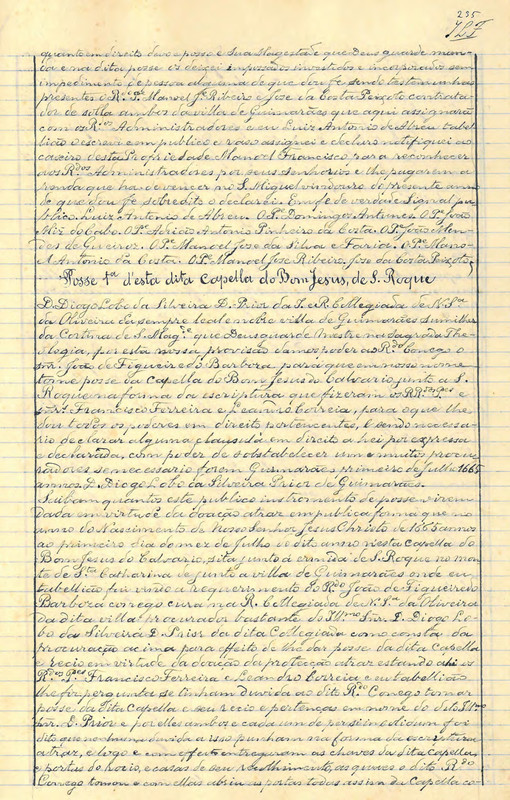 235
quanto em direito deve e posse e Sua Magestade que Deus guarde man-
da e na dita posse os deixei impossados investidos e incorporados sem
impedimento de pessoa alguma de que dou fe sendo testemunhas
presentes o R. Pe. Manoel Je. Ribeiro e Jose da Costa Peixoto contrata-
dor de solla ambos da villa de Guimarães que aqui assignarão
com os R.dos Administradores e eu Luiz Antonio de Abreu tabel-
lião o escrevi em publico e razo assignei e declaro notifiquei ao
caseiro desta Propriedade Manoel Francisco, para reconhecer
aos R.dos Administradores por seus senhorios e lhe pagarem a
renda que ha de vencer no S. Miguel vindouro do presente anno
de que dou fe sobredito o declarei. Em fe de verdade Signal pu-
blico. Luiz Antonio de Abreu. O Pe. Domingos Antunes. O Pe. João
do Cabo. O Pe. Adrião Antonio Pinheiro da Costa. O Pe. João Men-
des de Queiroz. O Pe. Manoel Jose da Silva e Faria. O Pe. Mano-
el Antonio da Costa. O Pe. Manoel Jose Ribeiro. Jose da Costa Peixoto
Posse 1ª d'esta dita Capella do Bom Jesus, de S. Roque
D. Diogo Lobo da Silveira D. Prior da I. e R. Collegiada de N. Sra.
da Oliveira da sempre leal e nobre villa de Guimarães Sumilher
da Cortina de S. Mag.de que Deus guarde Mestre na Sagrada The-
ologia, por esta nossa provisão damos poder ao R.do Conego o
snr. João de Figueiredo Barboza para que em nosso nome
tome posse da Capella do Bom Jesus do Calvario junto a S.
Roque na forma da escriptura que fizeram os RR.dos P.es
Francisco Ferreira e Leandro Correia, para o que lhe
dou todos os poderes em direito pertencentes, e sendo necessa-
rio declarar alguma clausula em direito a hei por expressa
e declarada, com poder de sobstabelecer um e muitos procu-
radores se necessario forem Guimarães primeiro de Julho 1665
annos. D. Diogo Lobo da Silveira Prior de Guimarães.
Saibam quantos este publico instromento de posse virem
dada em virtude da doação atraz em publica forma que no
anno do Nascimento de Nosso Senhor Jesus Christo de 1665 annos
ao primeiro dia do mez de Julho do dito anno n'esta capella do
Bom Jesus do Calvario, sita junto á ermida de S. Roque no mon-
te de Sta. Catharina de junto a villa de Guimarães onde eu
tabellião fui vindo a requerimento do R.do João de Figueiredo
Barboza conego cura na R. Collegiada de N. Sra. da Oliveira
da dita villa procurador bastante do Ill.mo Snr. D. Diogo Lo-
bo da Silveira D. Prior da dita Collegiada como consta da
procuração acima para effeito de lhe dar posse da dita capella
e recio em virtude da doação da protecção atraz estando ahi os
R.dos P.es Francisco Ferreira e Leandro Correia eu tabellião
lhe fiz pergunta se tinham duvida ao dito R.do Conego tomar
posse da dita Capella e seu recio e pertenças em nome do dito Ill.mo
Snr. D. Prior e por elles ambos e cada um de per si in solidum foi
dito que nenhuma duvida a isso punham na forma da escriptura
atraz, e logo e com effeito entregaram as chaves da dita Capella,
e portas do recio, e casas de seu recolhimento, as quaes o dito R.do
Conego tomou e com ellas abriu as portas todas assim da Capella co-